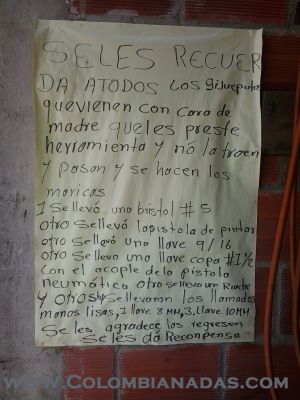 SELES RECUER
DA ATODOS LOS
quevienen con cara de
madre queles preste
herramienta y nó la traen
y pasan y se hacen los
maricas
1 Sellevó una bristol # 5
otro Sellevó lapistola de pintar
otro Sellevó una llave 9/16
otro Sellevo una llave copa #1½
con el acople dela pistola
neumática otro sellevo un Rache
y otros Sellevaron los llamados
manos lisas, 1 llave 8 MM, 3. Llave 10MM
Se les agradece los regresen
Se les dá Reconpensa
www.Colombianadas.com